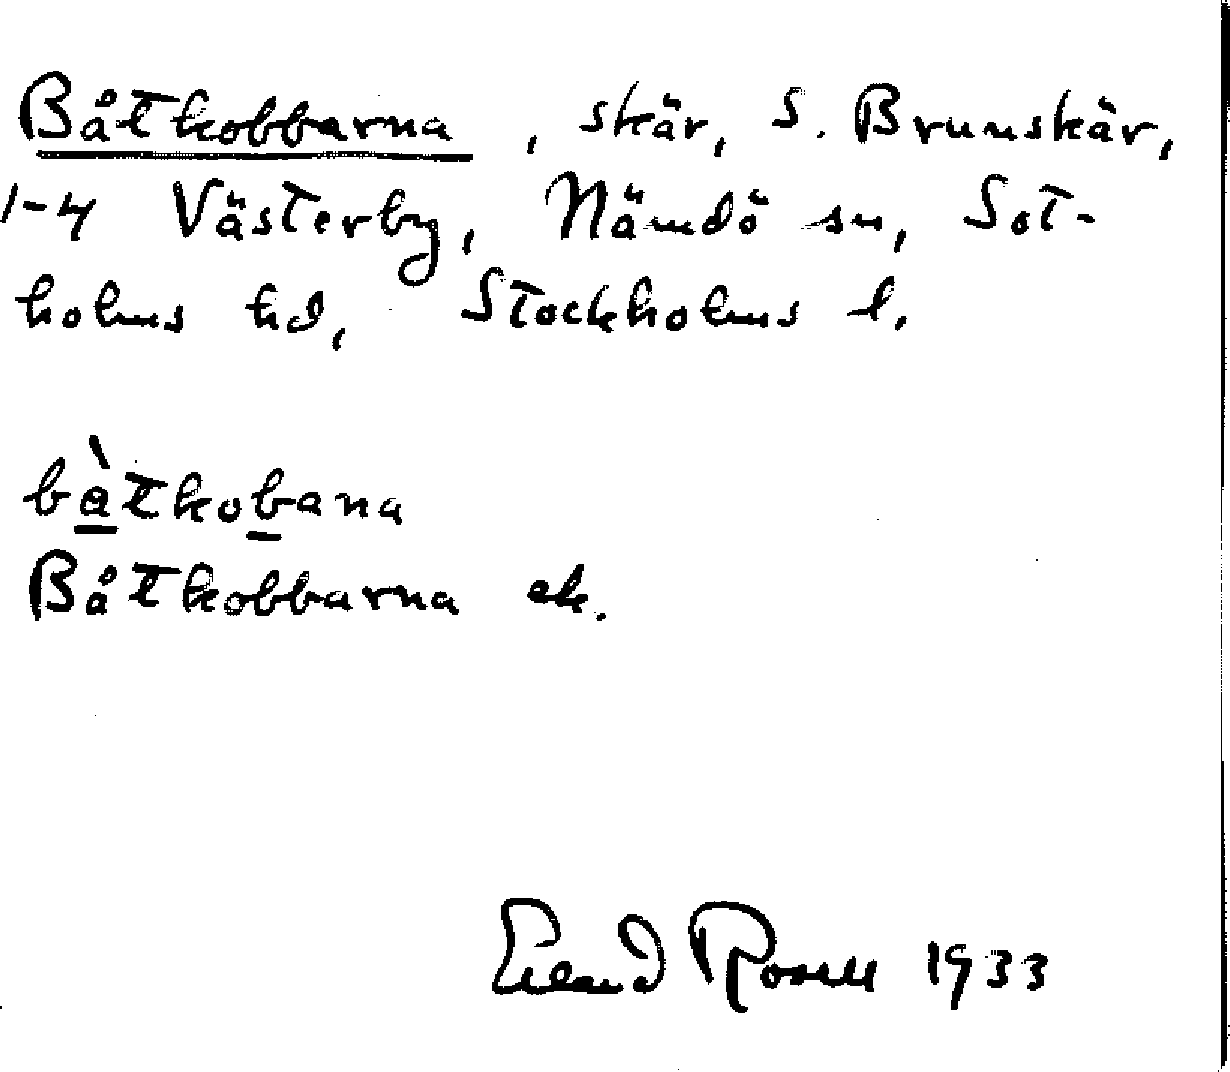 Båtkobbarna, skär, S. Brunskär,
1-4 Västerby, Nämdö sn, Sot-
holms hd, Stockholms l.
bàtkobana
Båtkobbarna ek.
Erland Rosell 1933